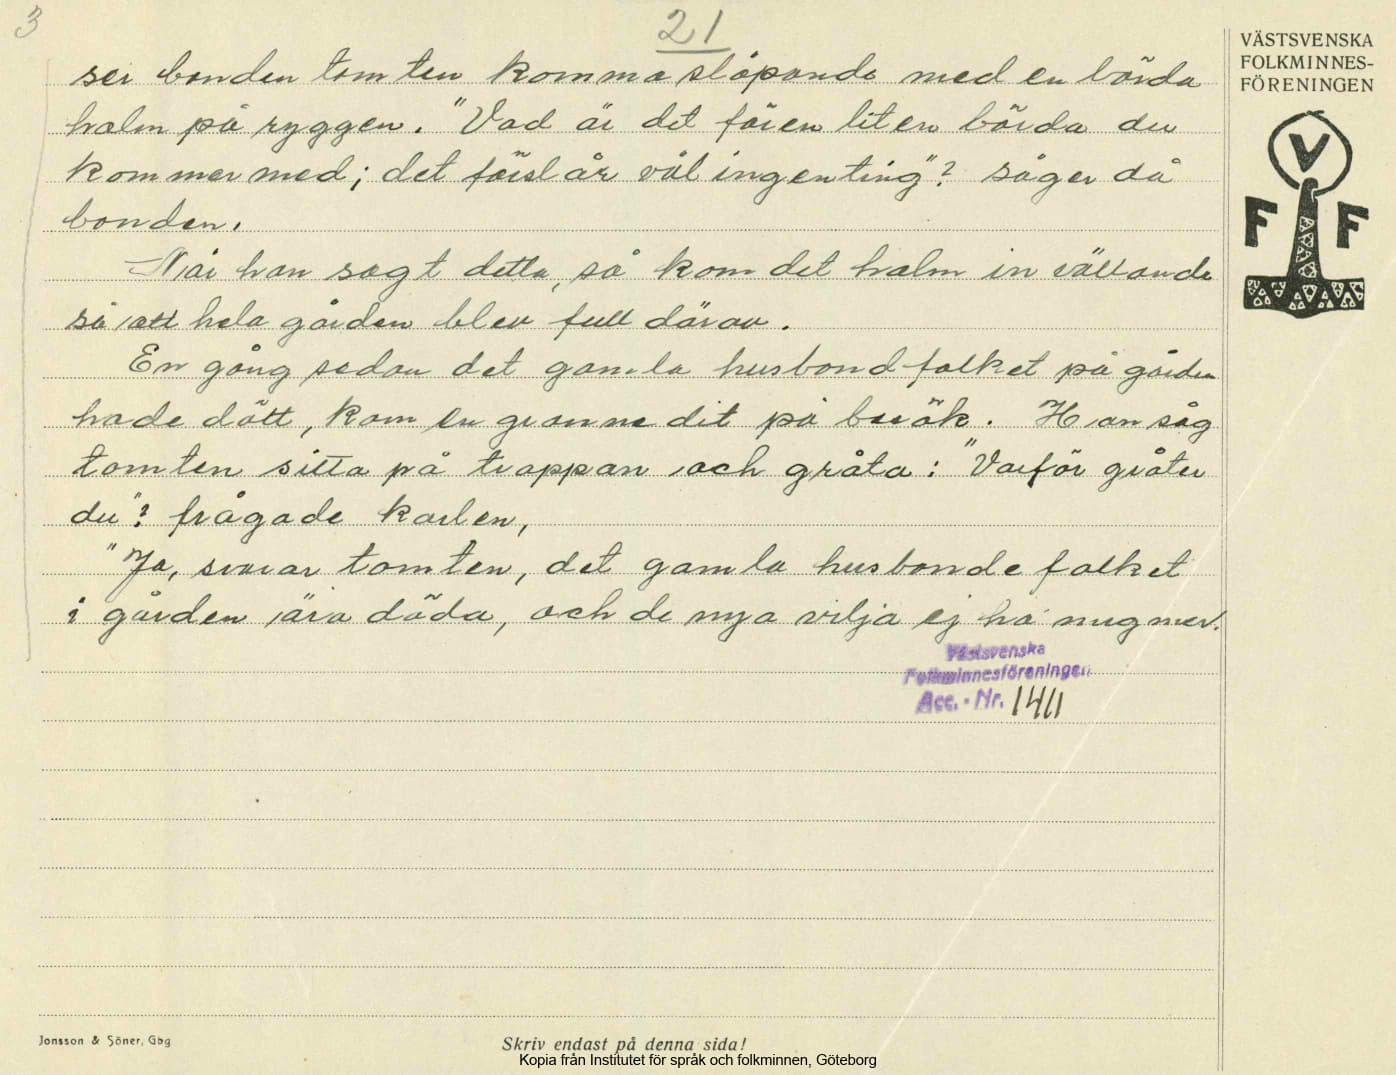 3
21
VÄSTSVENSKA
FOLKMINNES-
FÖRENINGEN
V
F F
ser bonden tomten komma släpande med en börda
halm på ryggen. "Vad är det för en liten börda du
kommer med; det förslår väl ingenting"? säger då
bonden.
När han sagt detta, så kom det halm in vällande
så att hela gården blev full därav.
En gång sedan det gamla husbondfolket på gården
hade dött, kom en granne dit på besök. Han såg
tomten sitta på trappan och gråta: "Varför gråter
du"? frågade karlen,
"Ja, svarar tomten, det gamla husbondefolket
i gården äro döda, och de nya vilja ej ha mig mer.
Västsvenska
Folkminnesföreningen
Acc. - Nr. 1411
Jonsson & Söner, Gbg
Skriv endast på denna sida!
Kopia från Institutet för språk och folkminnen, Göteborg